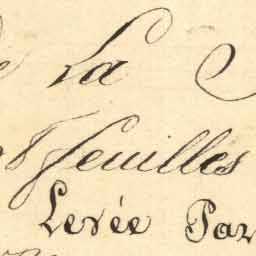 La
feuilles
Levée Par